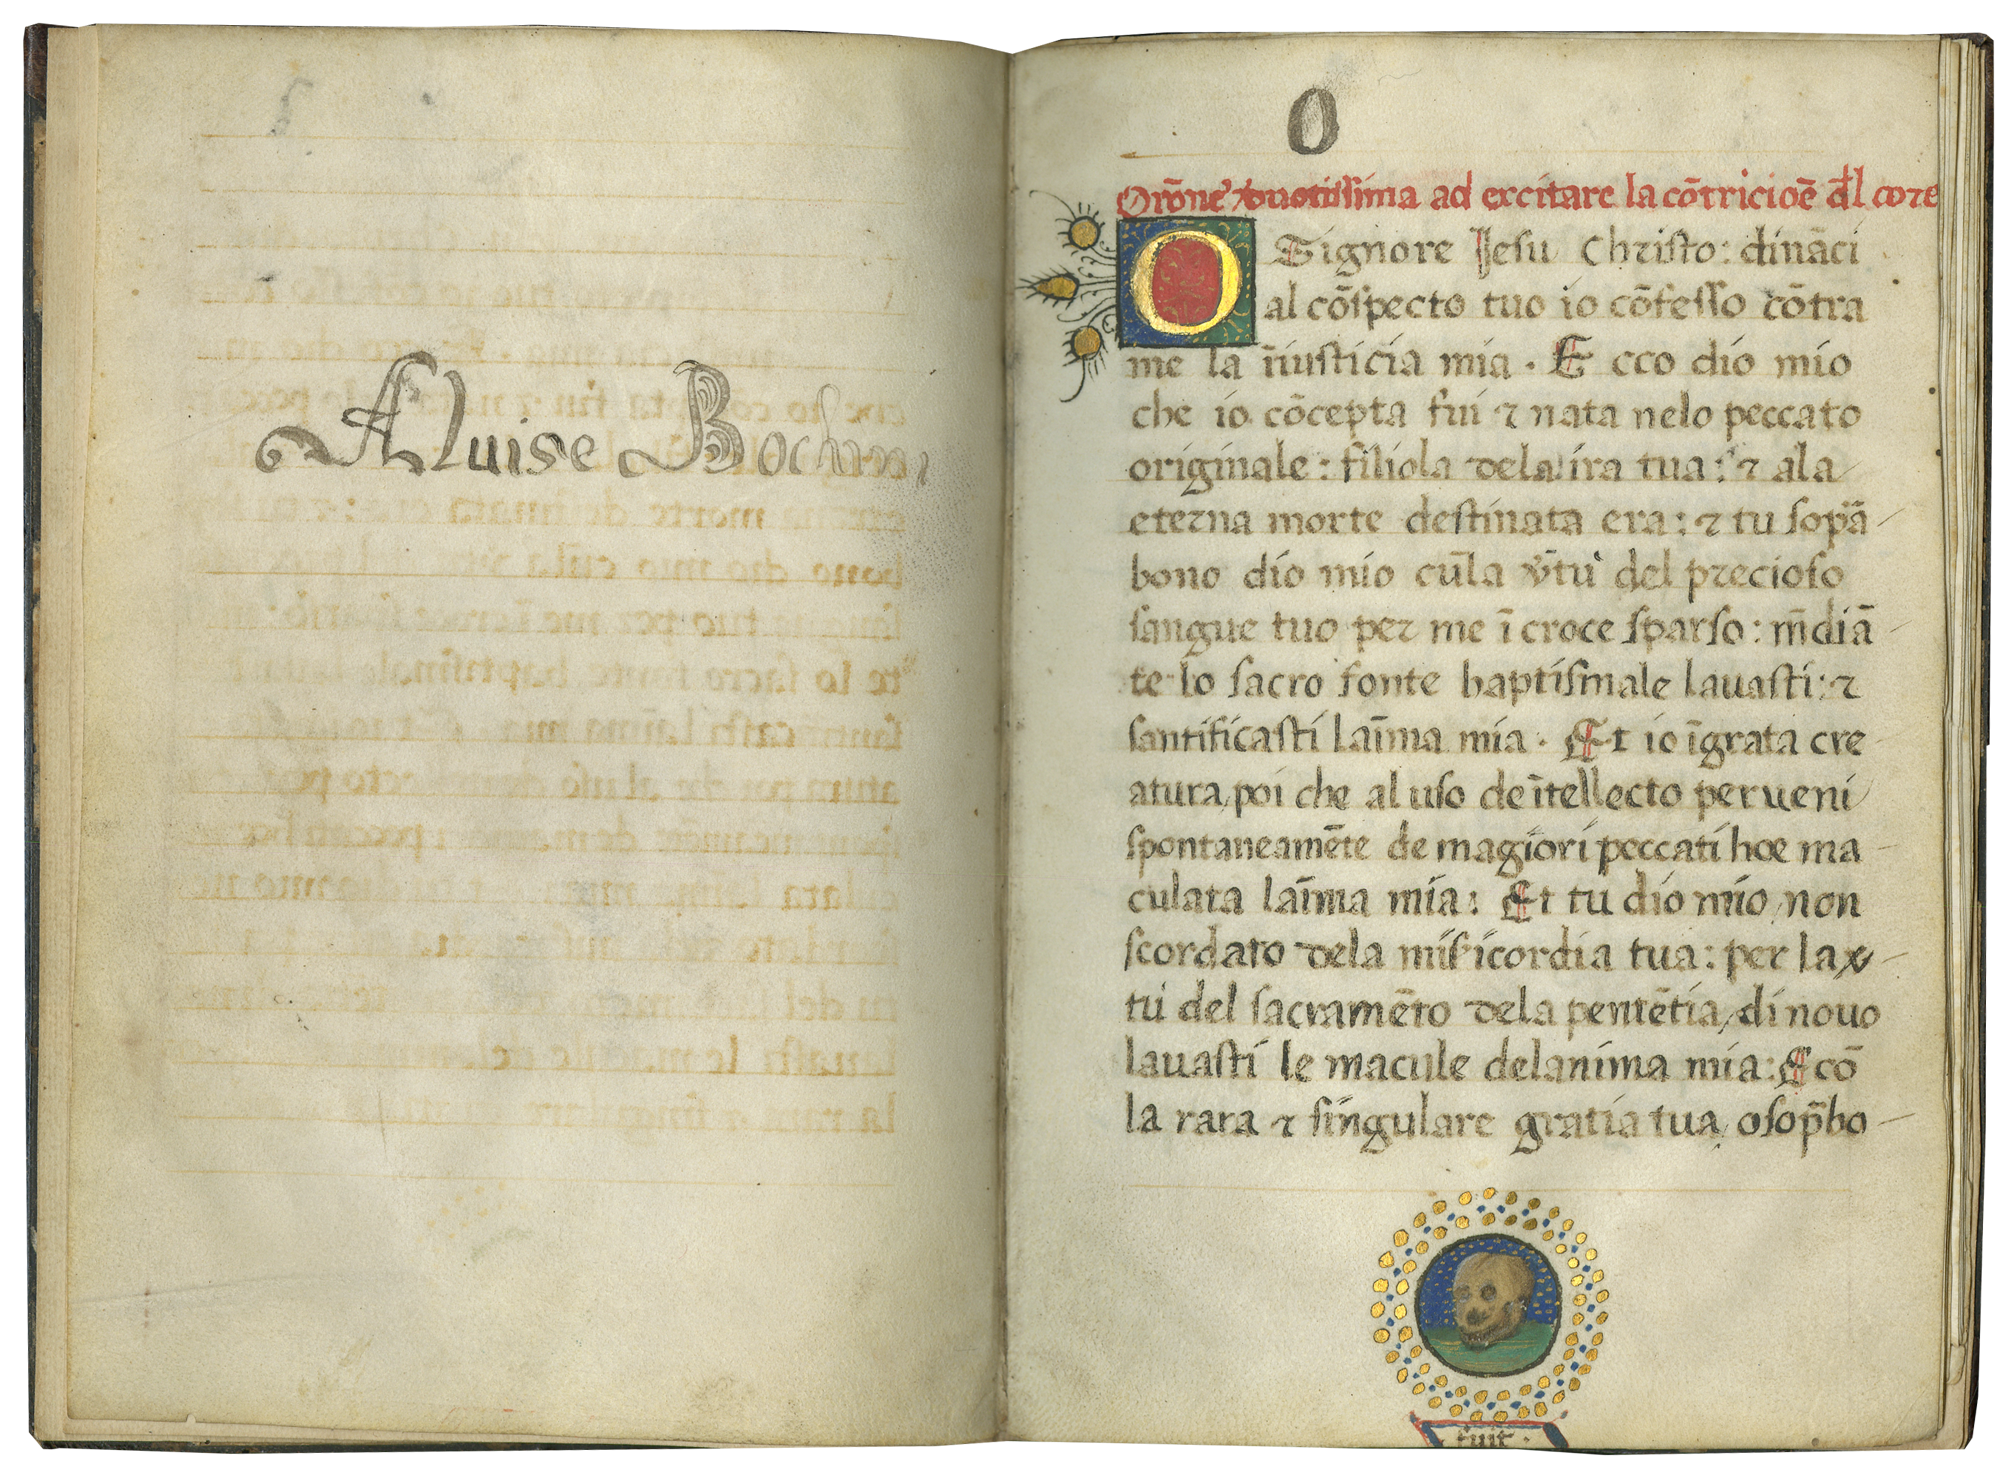 Aluise
O
Orōne deuotissima ad excitare la cōtricioē dl core
O Signore Jesu Christo: dināci
al cōspecto tuo io cōfesso cōtra
me la īiusticia mia. Ecco dio mio
che io cōcepta fui ⁊ nata nelo peccato
originale: filiola dela ira tua: ⁊ ala
eterna morte destinata era: ⁊ tu sop̄a
bono dio mio cūla v̄tu del precioso
sangue tuo per me ī croce sparso: m̄diā
te lo sacro fonte baptismale lauasti: ⁊
santificasti laīma mia. Et io īgrata cre
atura, poi che al uso de ītellecto perueni
spontaneamēte de magiori peccati hoe ma
culata laīma mia: Et tu dio mio, non
scordato dela misericordia tua: per la v̄
tu del sacramēto dela penitētia, di nouo
lauasti le macule delanima mia: E cō
la rara ⁊ singulare gratia tua, o sop̄bo
fuit.